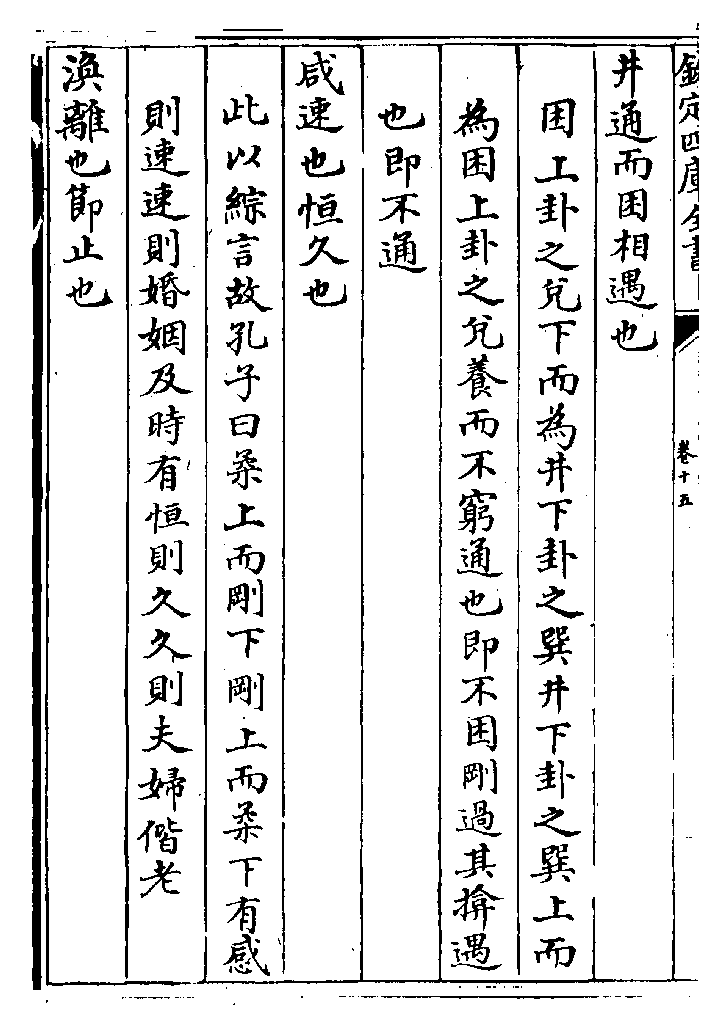 欽定四庫全書
卷十五
井通而困相遇也
困上卦之兌下而為井下卦之巽井下卦之巽上而
為困上卦之兌養而不窮通也即不困剛過其揜遇
也即不通
咸速也恒久也
此以綜言故孔子曰柔上而剛下剛上而柔下有感
則速速則婚姻及時有恒則久久則夫婦偕老
渙離也節止也